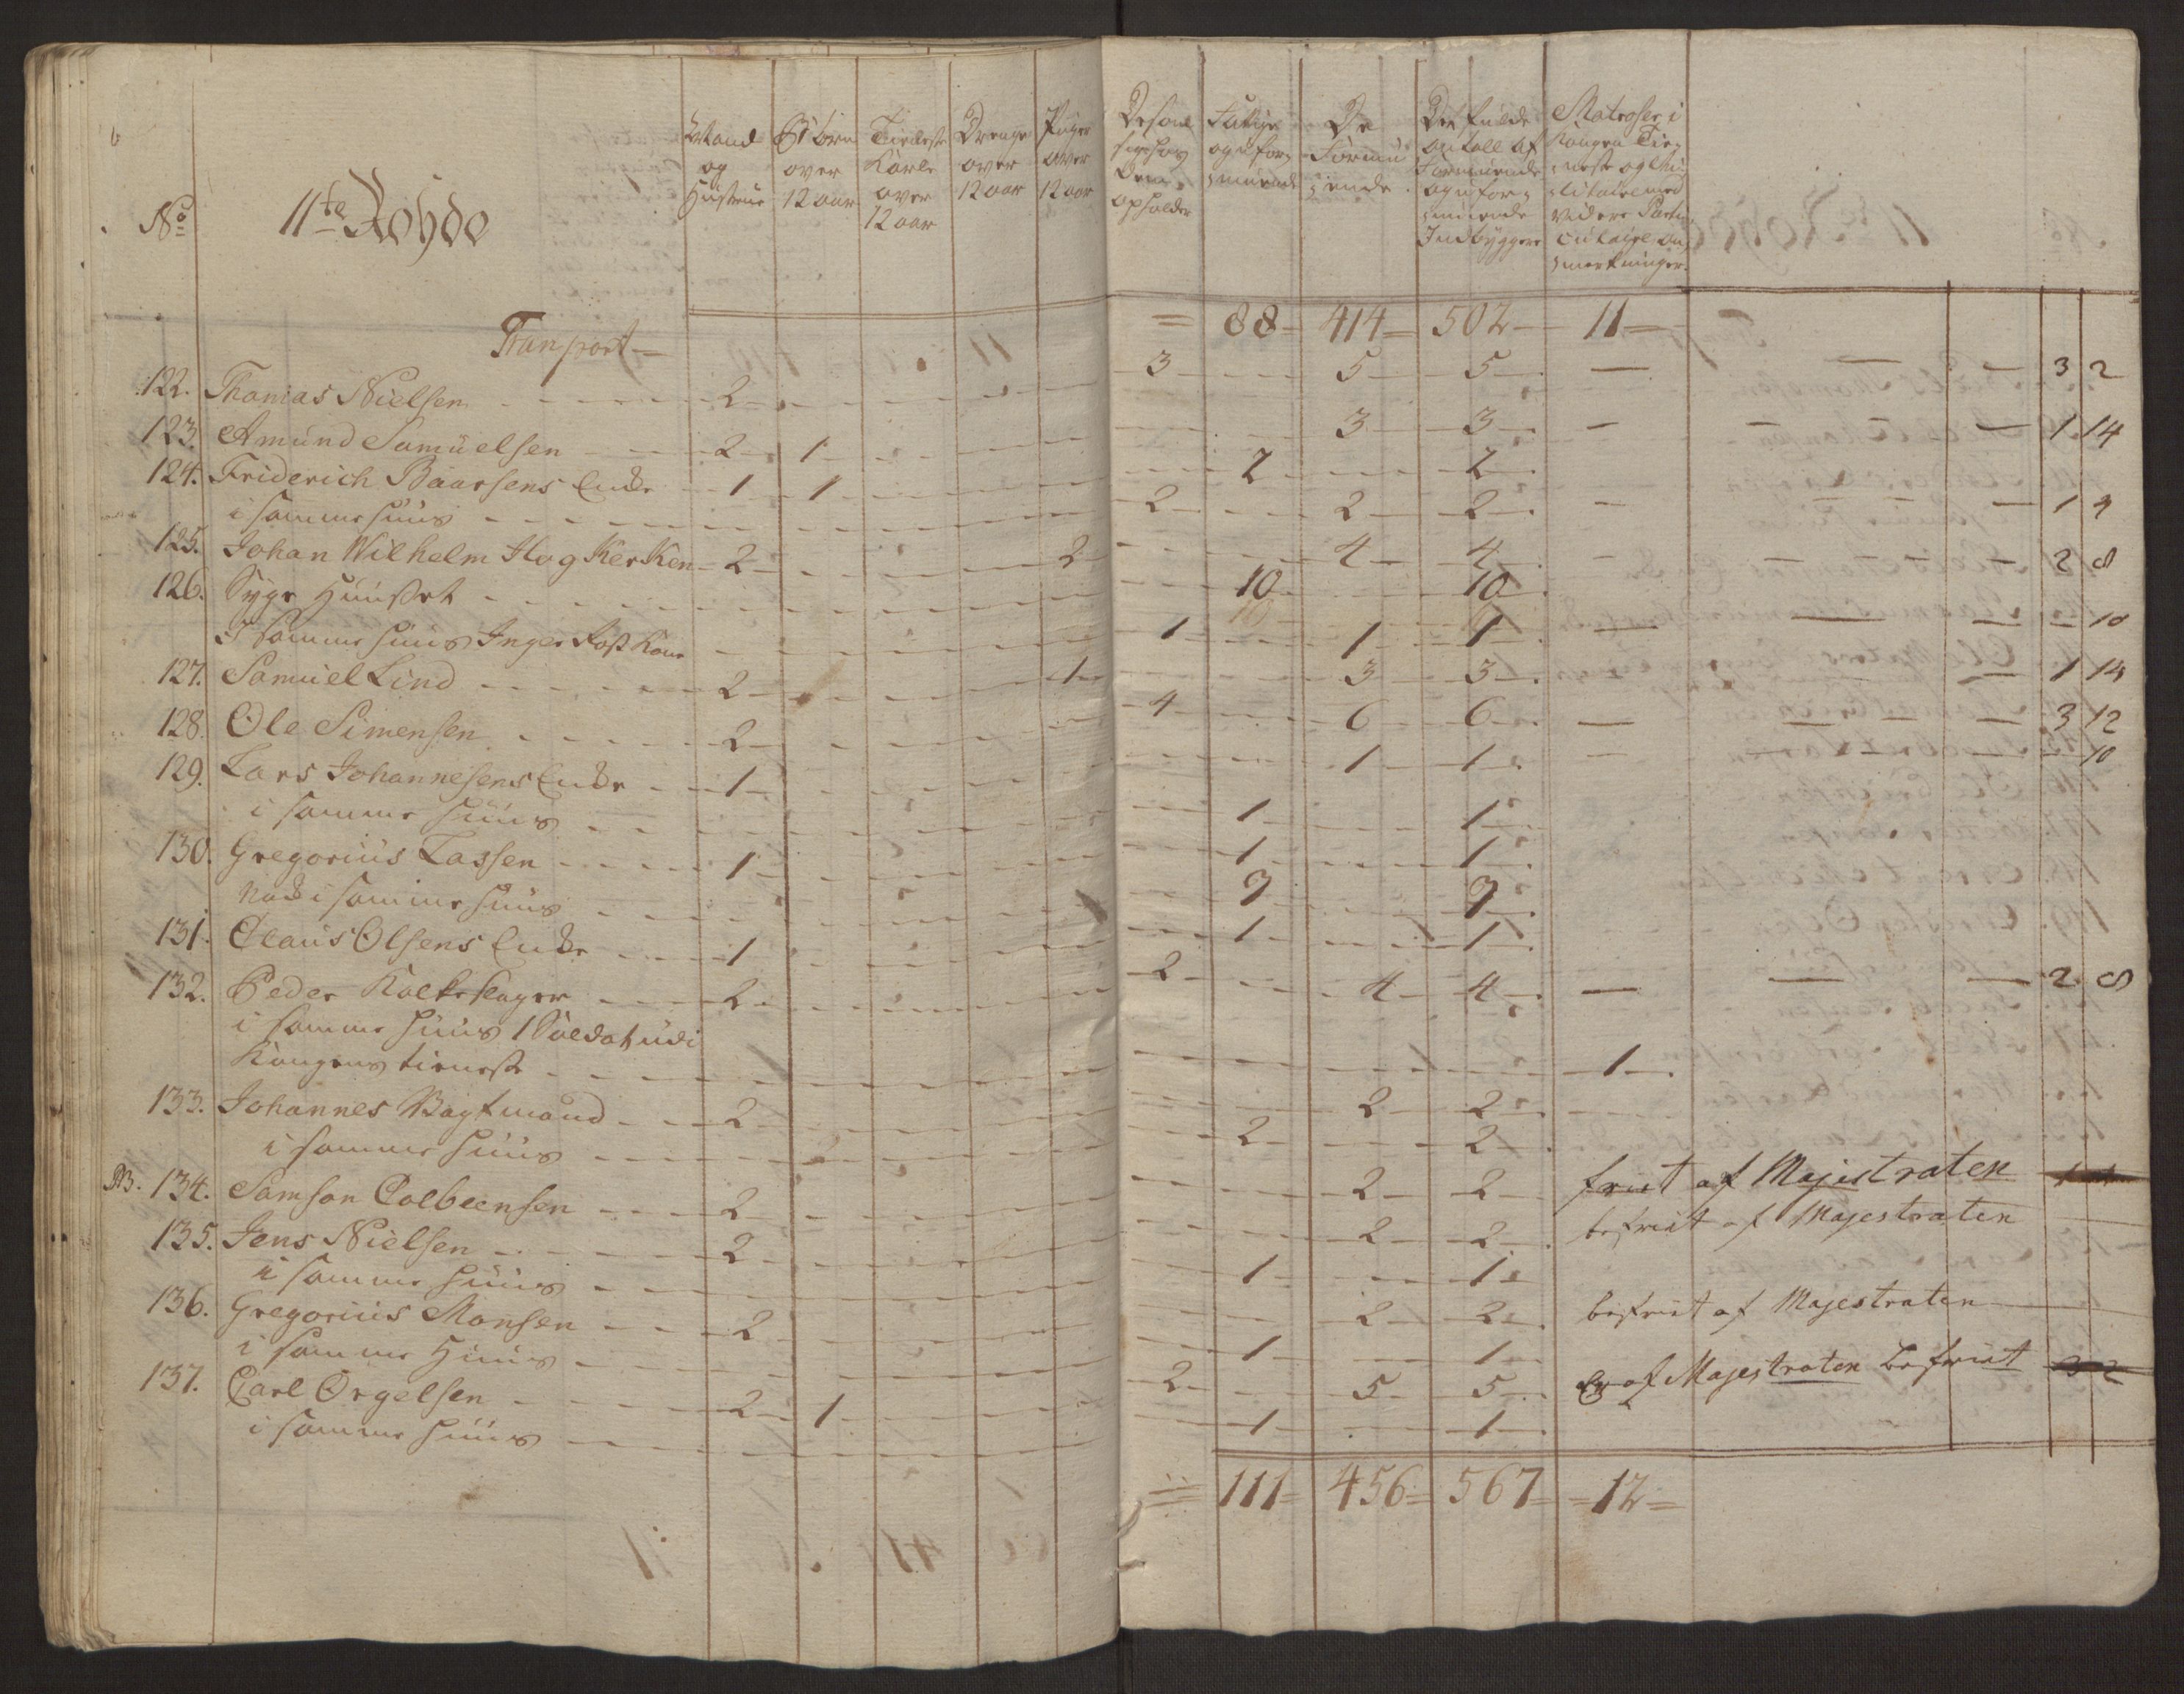 No
11te Rohde
Mand og Hustrue
Börn over 12 aar
Tieneste Karle over 12 aar
Drenge over 12 aar
Piger over 12 aar
De som sig hos Dem opholder
Fattige og ufor= muende
De Formu= ende
Det fulde antall af Formuende og ufor= muende Indbyggere
Matroser i Kongen Tie= neste og Mi= litaire med videre Parti= culaire an= merkninger
Transport — = 88 — 414 — 502 — 11 —
122. Thomas Nielsen 2 3 5 5 — 3 2
123. Amund Samuelsen 2 1 3 3 — 1 14
124. Friderich Baarsens Encke 1 1 2 2
i samme huus 2 2 2 — 1 4
125. Johan Wilhelm Hog Kerken 2 2 4 4 — 2 8
126. Syge Huuset 10 10
I samme huus Inger Kost kone 1 1 1 — 10
127. Samuel Lind 2 1 3 3 — 1 14
128. Ole Simensen 2 4 6 6 — 3 12
129. Lars Johannesens Encke 1 1 1 — 10
i samme huus 1 1
130. Gregorius Lassen 1 1 1
Nock i samme huus 7 7
131. Claus Olsens Encke 1 1 1
132. Peder Kalkslager 2 2 4 4 — 2 8
i samme huus 1 Soldat udi
Kongens tieneste 1
133. Johannes Vagtmand 2 2 2
i samme huus 2 2
NB. 134. Samson Colbeensen 2 2 2 friet af Majestraten
135. Jens Nielsen 2 2 2 befriet af Majestraten
i samme huus 1 1
136. Gregorius Monsen 2 2 2 befriet af Majestraten
i samme Huus 1 1
137. Carl Orgelsen 2 1 2 5 5 af Majestraten befriet 3 2
i samme huus 1 1
111 = 456 = 567 = 12 =